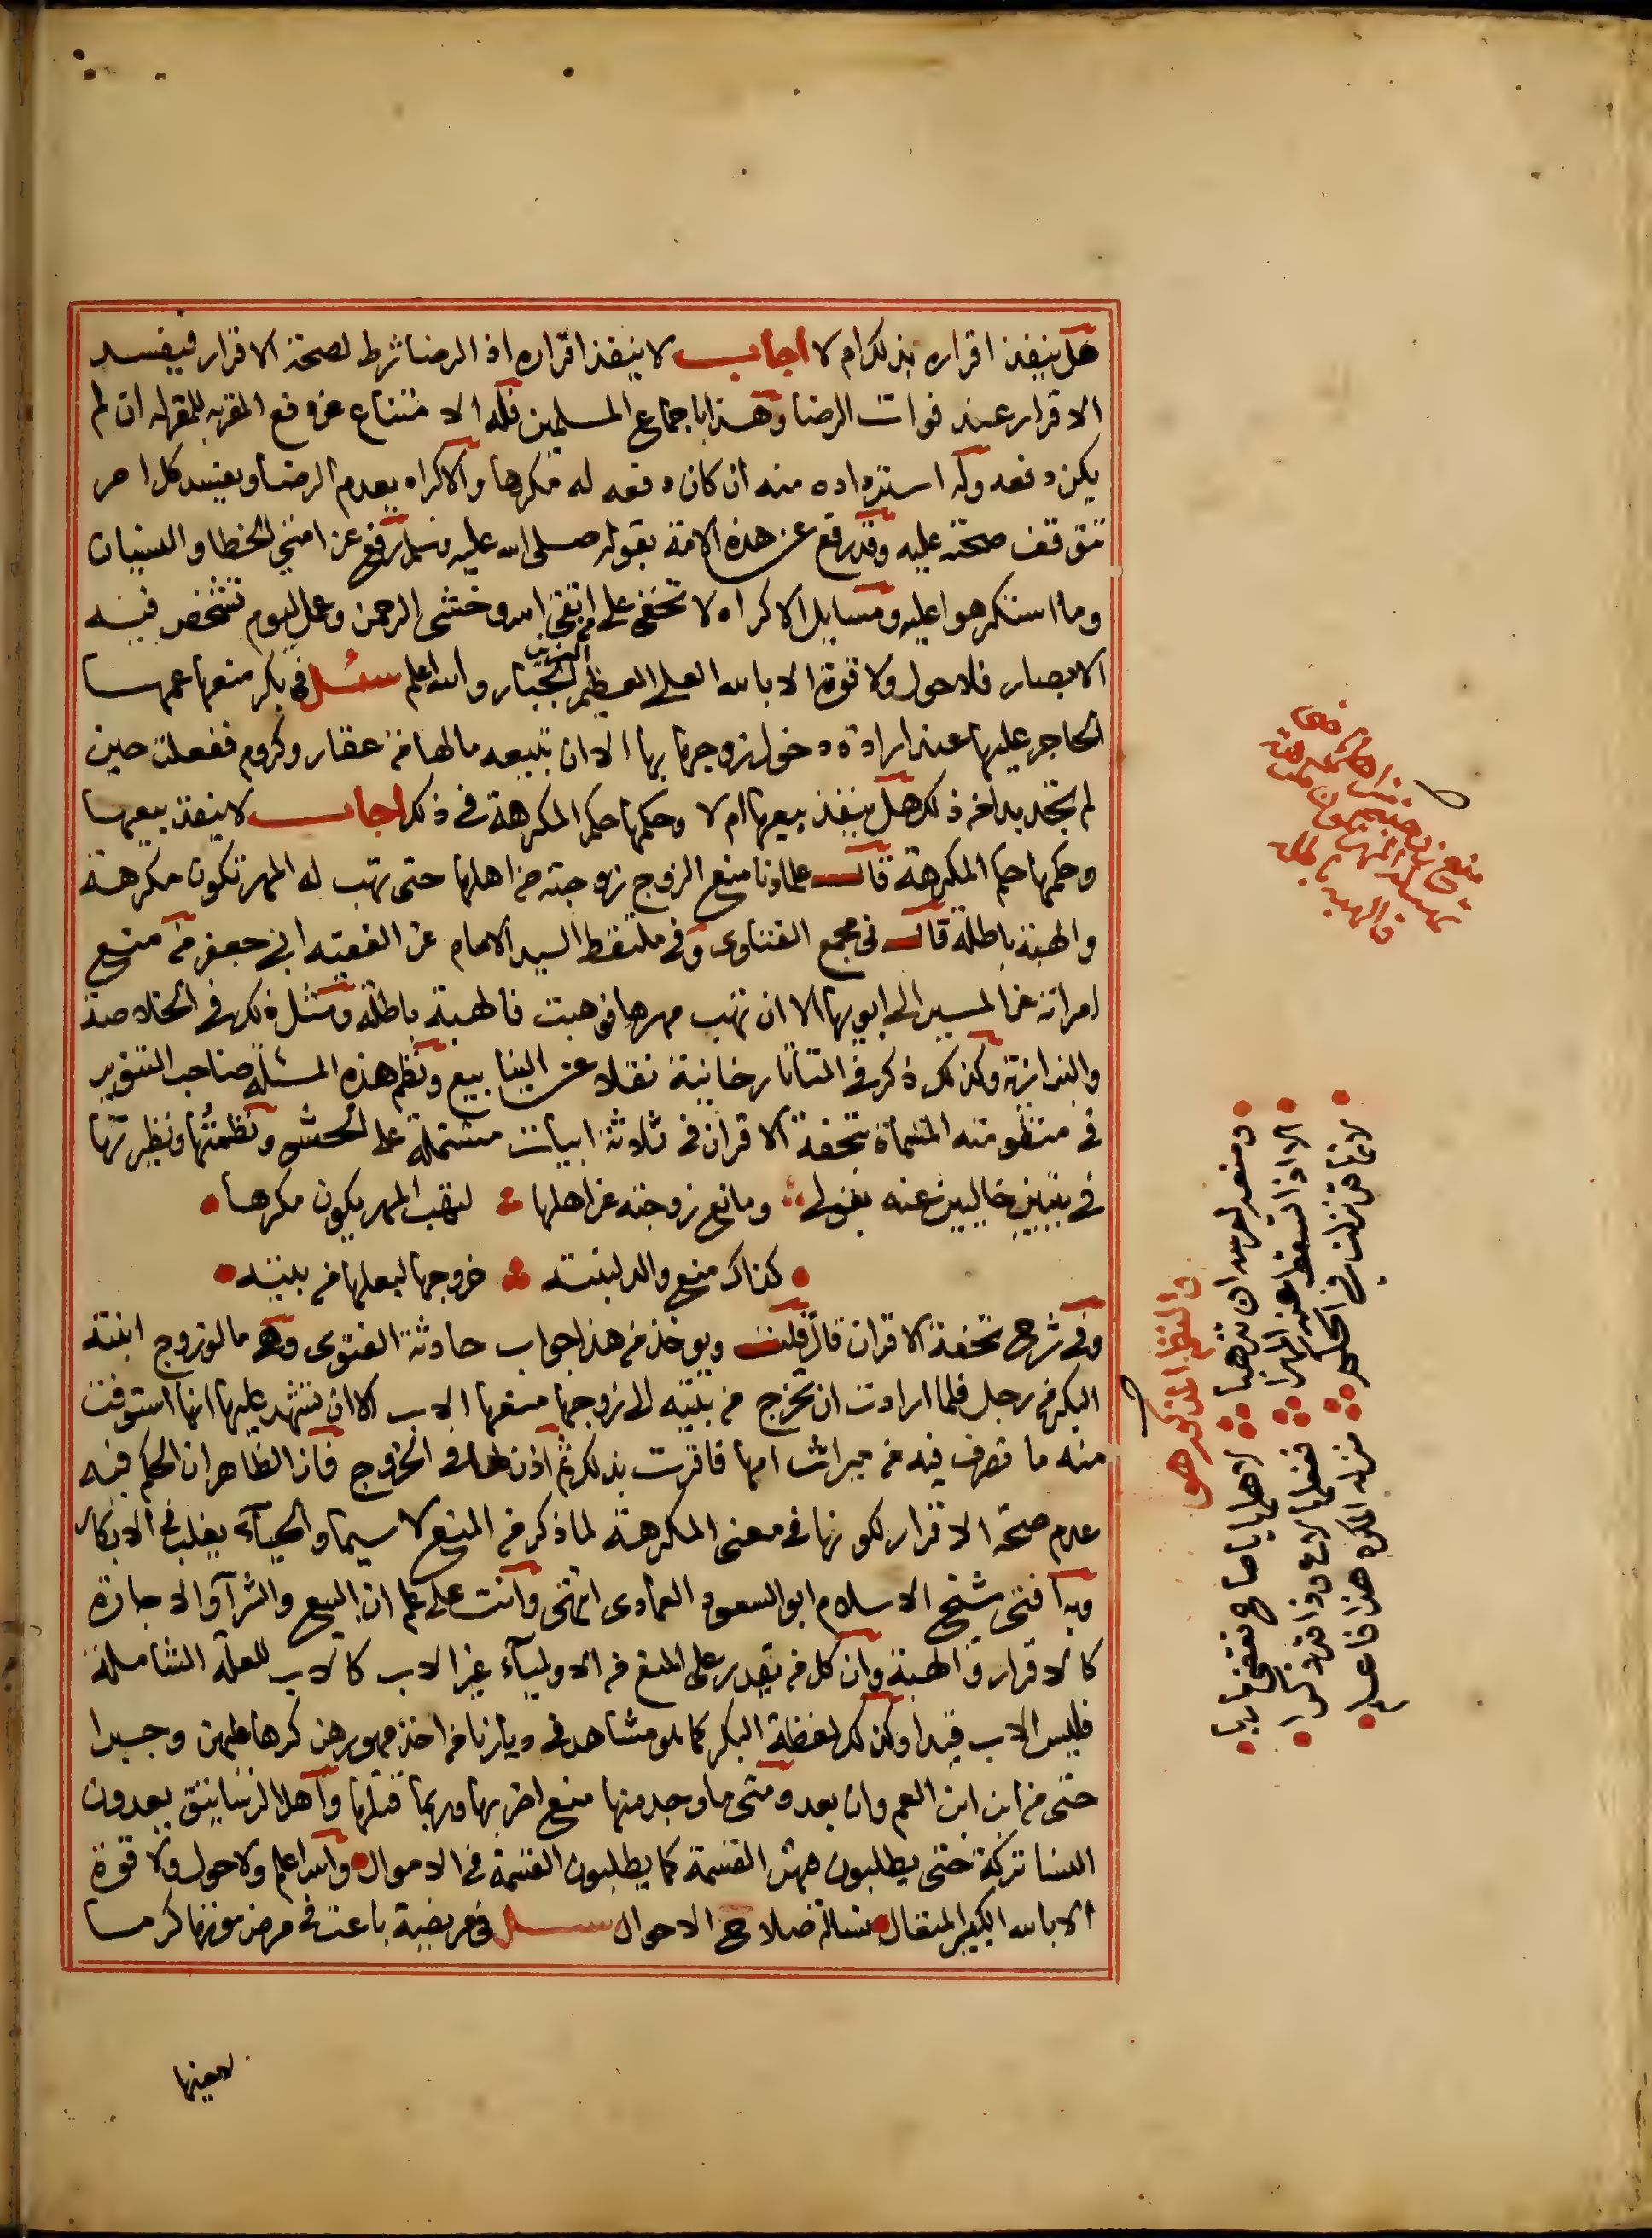 هل ينفذ اقراره بذلك ام لا اجاب لا ينفذ اقراره اذ الرضا شرط لصحة الاقرار فيفسد
الاقرار عند فوات الرضا وهذا باجماع المسلمين فله الامتناع عن دفع المقر به للمقر له ان لم
يكن دفعه وله استرداده منه ان كان دفعه له مكرها والاكراه يعدم الرضا ويفسد كل امر
تتوقف صحته عليه وقد رفع عن هذه الامة بقوله صلى الله عليه وسلم رفع عن امتي الخطا والنسيان
وما استكرهوا عليه ومسايل الاكراه لا تخفى على من اتقى الله وخشى الرحمن وعمل ليوم تشخص فيه
الابصار فلا حول ولا قوة الا بالله العلي العظيم العزيز الجبار والله اعلم سئل في بكر منعها عمها
الحاجر عليها عند ارادة دخول زوجها بها الا ان تبيعه مالها من عقار وكروم ففعلت حين
لم تجد بدا من ذلك هل ينفذ بيعها ام لا وحكمها حكم المكرهة في ذلك اجاب لا ينفذ بيعها
وحكمها حكم المكرهة قالـ علماونا منع الزوج زوجته من اهلها حتى تهب له المهر تكون مكرهة
والهبة باطلة قالـ في مجمع الفتاوى وفي ملتقط السيد الامام عن الفقيه ابي جعفر من منع
امراته عن المسير الى ابويها الا ان تهب مهرها فوهبت فالهبة باطلة ومثل ذلك في الخلاصة
والبزازية وكذلك ذكر في التاتارخانية نقلا عن الينابيع ونظم هذه المسئلة صاحب التنوير
في منظومته المسماة تحفة الاقران في ثلاثة ابيات مشتملة على الحشو ونظمتها ونظيرتها
في بيتين خاليين عنه بقولي ومانع زوجته عن اهلها لتهب المهر يكون مكرها
كذاك منع والد لبنته خروجها لبعلها من بيته
وفي شرح تحفة الاقران قال قلت ويوخذ من هذا جواب حادثة الفتوى وهي ما لو زوج ابنته
البكر من رجل فلما ارادت ان تخرج من بيته الى زوجها منعها الاب الا ان تشهد عليها انها استوفت
منه ما تصرف فيه من ميراث امها فاقرت بذلك ثم اذن لها في الخروج فان الظاهر ان الحكم فيه
عدم صحة الاقرار لكونها في معنى المكرهة لما ذكر من المنع لا سيما والحياء يغلب في الابكار
وبه افتى شيخ الاسلام ابو السعود العمادى انتهى وانت على علم ان البيع والشرآ والاجارة
كالاقرار والهبة وان كل من يقدر على المنع من الاولياء غير الاب كالاب للعلة الشاملة
فليس الاب قيدا وكذلك لفظة البكر كما هو مشاهد في ديارنا من اخذ مهورهن كرها عليهن وجبرا
حتى من ابن ابن العم وان بعد ومتى ما وجد منها منع اضر بها وربما قتلها واهل الرساتيق يعدون
النسا تركة حتى يطلبون فيهن القسمة كما يطلبون القسمة في الاموال والله اعلم ولا حول ولا قوة
الا بالله الكبير المتعال نساله صلاح الاحوال سئل في مريضة باعت في مرض موتها كرما
لمعينها
منع زوجته عن اهلها
فالهبة باطلة
والنظم المذكور هو
ومنعه لعرسه ان تذهبا